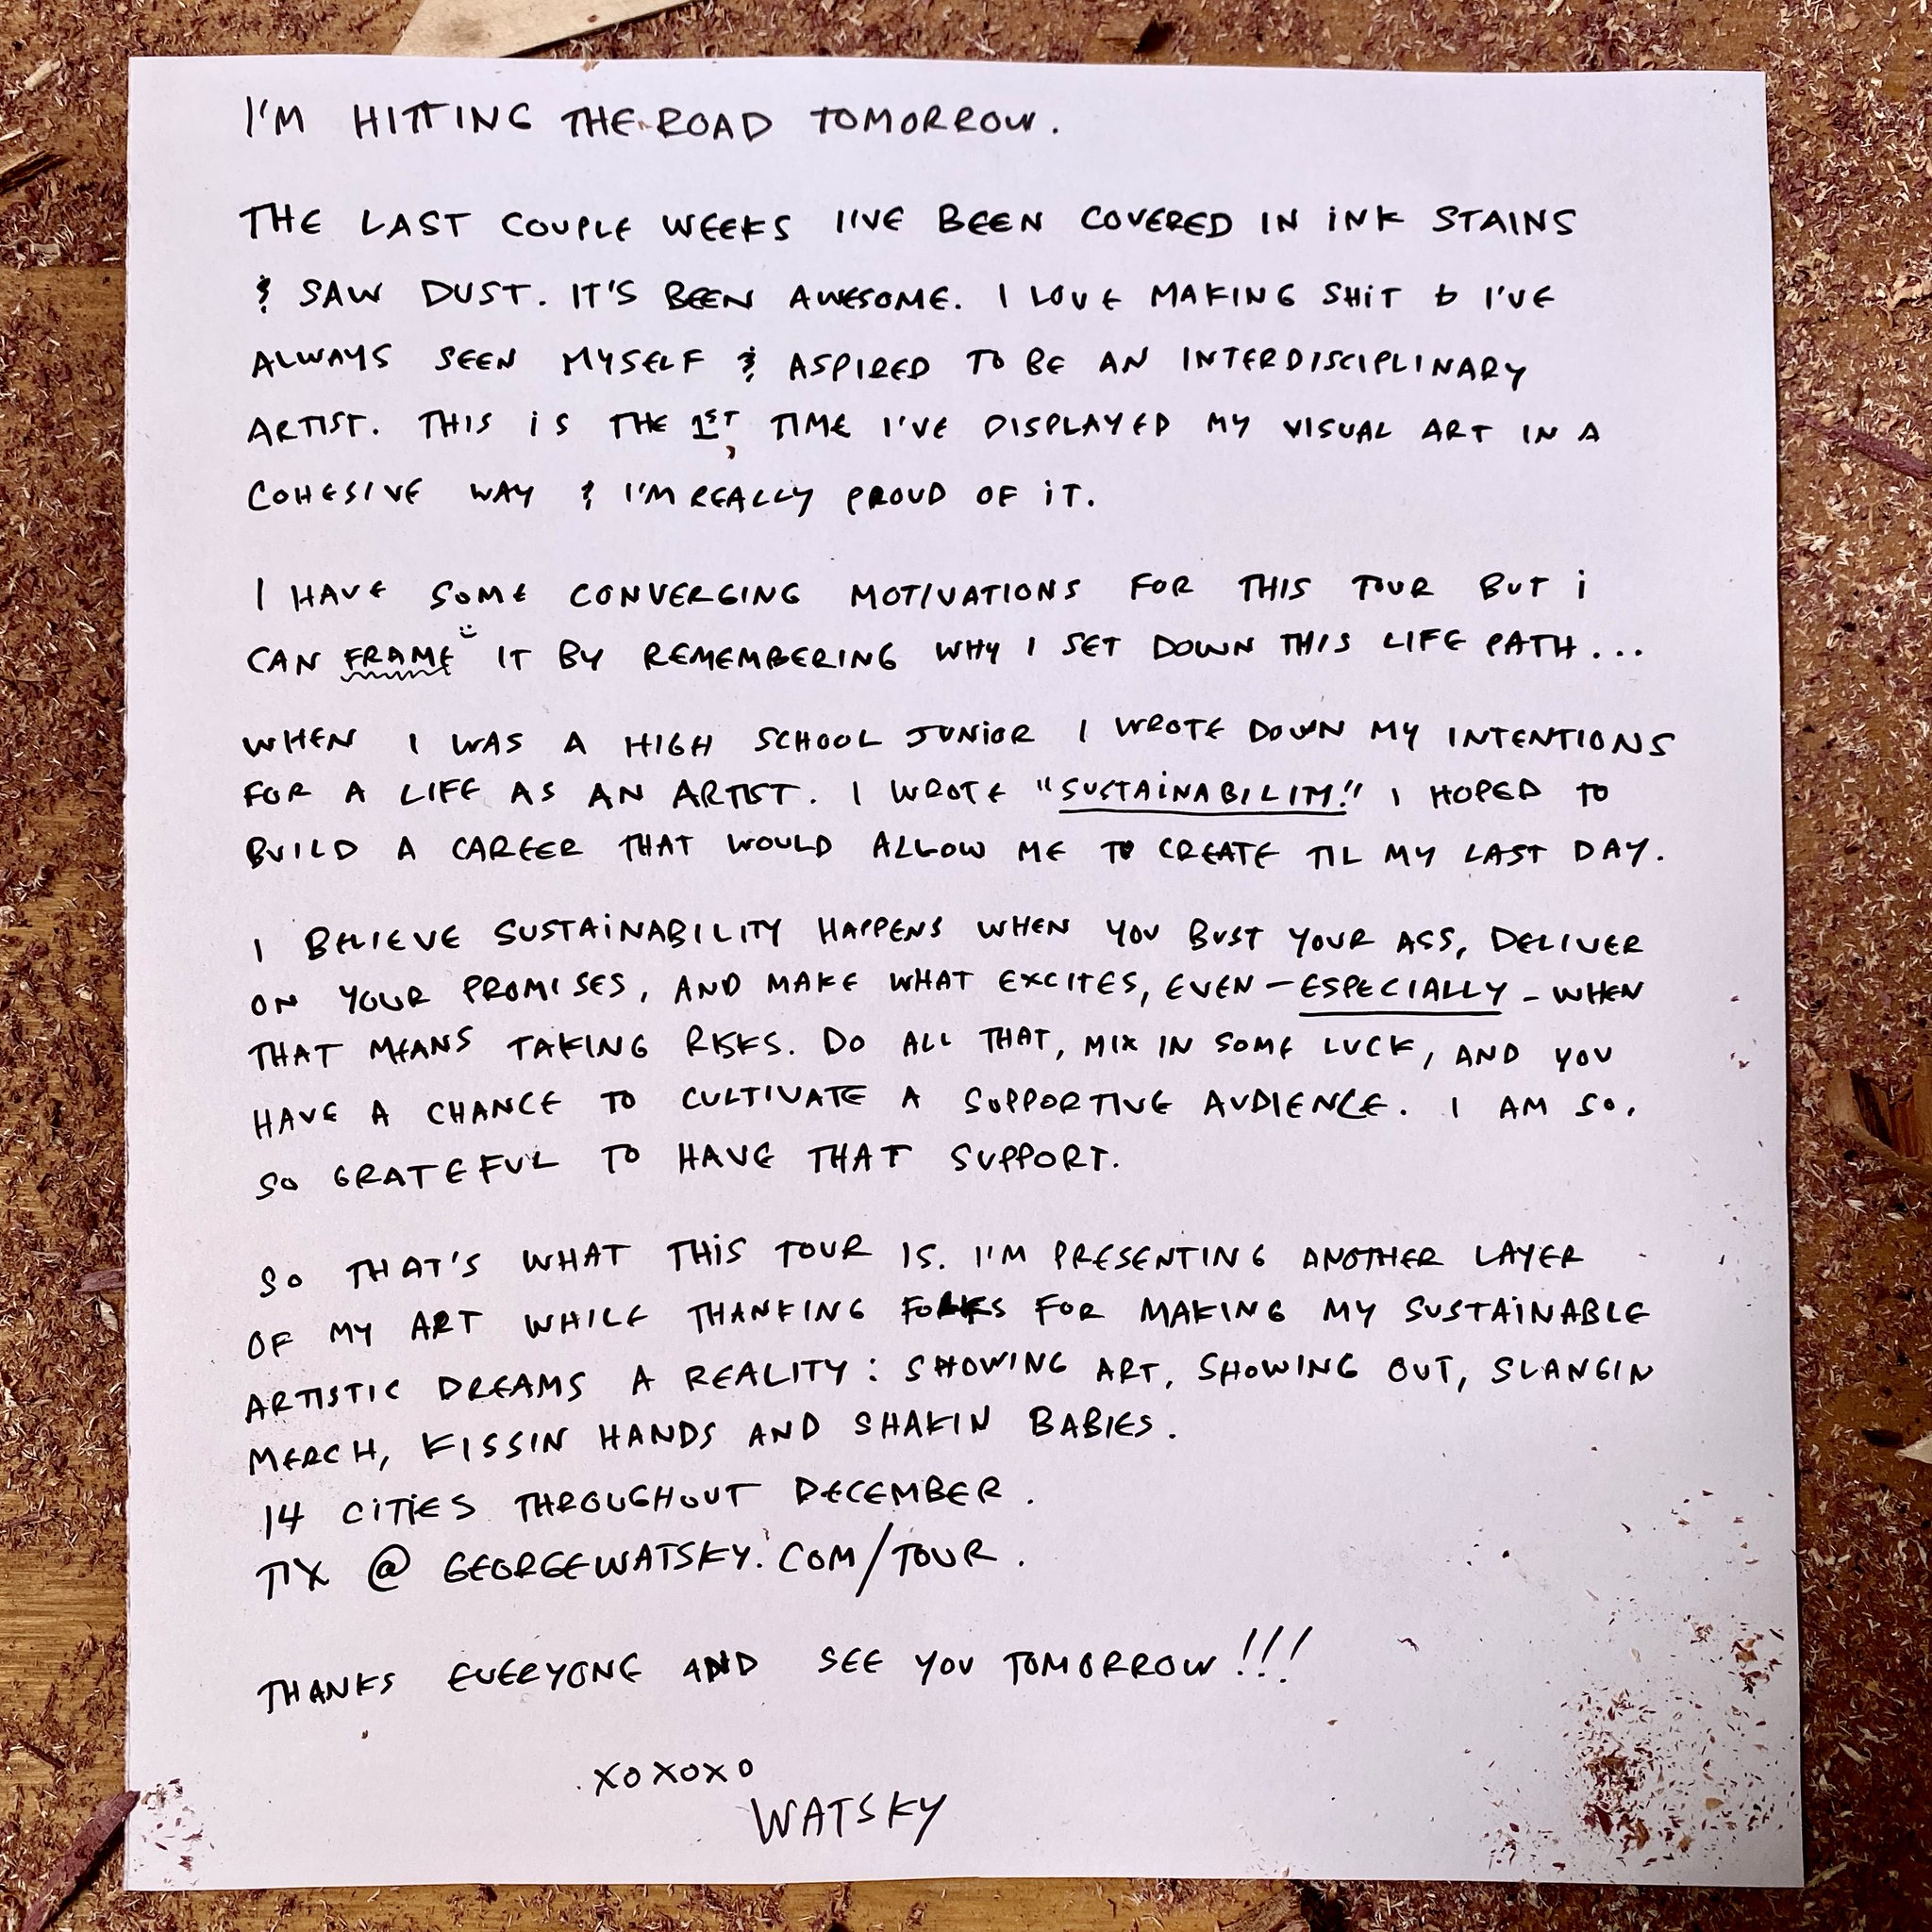 I'M HITTING THE ROAD TOMORROW.
THE LAST COUPLE WEEKS I'VE BEEN COVERED IN INK STAINS
& SAW DUST. IT'S BEEN AWESOME. I LOVE MAKING SHIT & I'VE
ALWAYS SEEN MYSELF & ASPIRED TO BE AN INTERDISCIPLINARY
ARTIST. THIS IS THE 1ST TIME I'VE DISPLAYED MY VISUAL ART IN A
COHESIVE WAY & I'M REALLY PROUD OF IT.
I HAVE SOME CONVERGING MOTIVATIONS FOR THIS TOUR BUT I
CAN FRAME IT BY REMEMBERING WHY I SET DOWN THIS LIFE PATH...
WHEN I WAS A HIGH SCHOOL JUNIOR I WROTE DOWN MY INTENTIONS
FOR A LIFE AS AN ARTIST. I WROTE "SUSTAINABILITY." I HOPED TO
BUILD A CAREER THAT WOULD ALLOW ME TO CREATE TIL MY LAST DAY.
I BELIEVE SUSTAINABILITY HAPPENS WHEN YOU BUST YOUR ASS, DELIVER
ON YOUR PROMISES, AND MAKE WHAT EXCITES, EVEN – ESPECIALLY – WHEN
THAT MEANS TAKING RISKS. DO ALL THAT, MIX IN SOME LUCK, AND YOU
HAVE A CHANCE TO CULTIVATE A SUPPORTIVE AUDIENCE. I AM SO,
SO GRATEFUL TO HAVE THAT SUPPORT.
SO THAT'S WHAT THIS TOUR IS. I'M PRESENTING ANOTHER LAYER
OF MY ART WHILE THANKING FOLKS FOR MAKING MY SUSTAINABLE
ARTISTIC DREAMS A REALITY: SHOWING ART, SHOWING OUT, SLANGIN
MERCH, KISSIN HANDS AND SHAKIN BABIES.
14 CITIES THROUGHOUT DECEMBER.
TIX @ GEORGEWATSKY.COM/TOUR.
THANKS EVERYONE AND SEE YOU TOMORROW!!!
XOXOXO
WATSKY